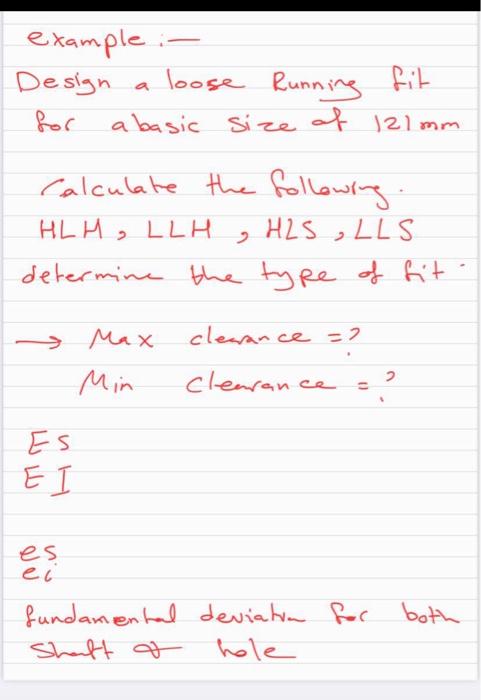 example :—
Design a loose Running fit
for a basic size of 121 mm
Calculate the following.
HLH, LLH, HLS, LLS
determine the type of fit.
→ Max clearance = ?
Min Clearance = ?
ES
EI
es
ei
fundamental deviation for both
Shaft & hole